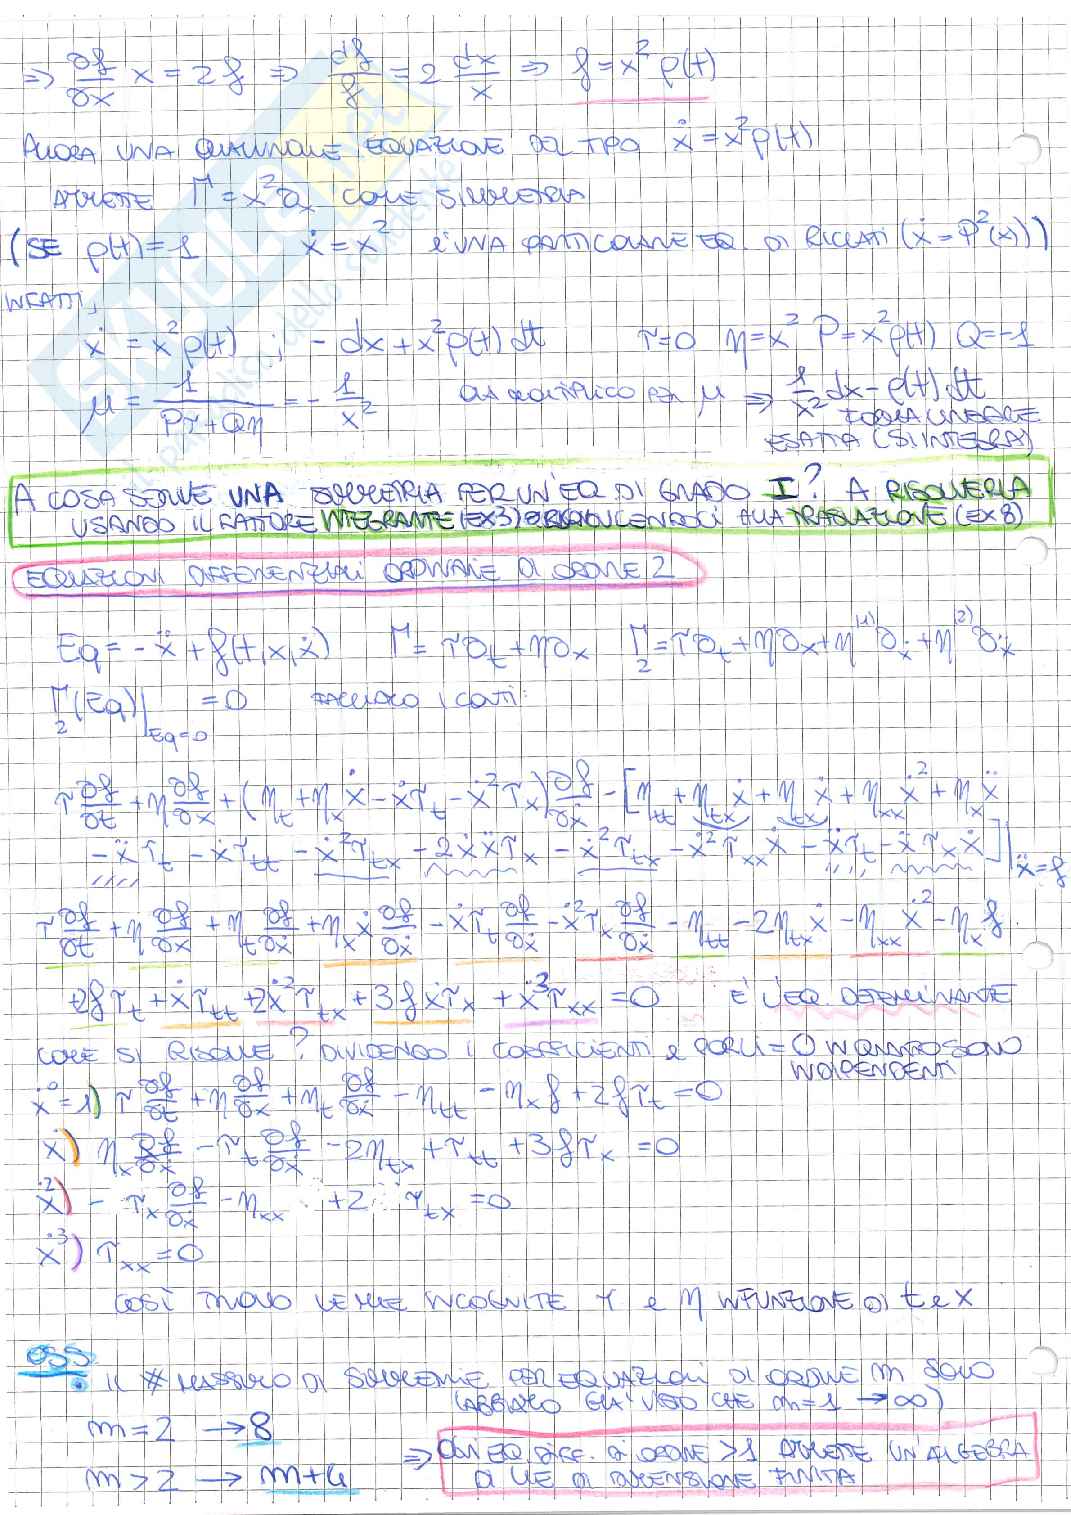 ⇒ ∂f/∂x x = 2f ⇒ df/f = 2 dx/x ⇒ f = x² ρ(t)
ALLORA UNA QUALUNQUE EQUAZIONE DEL TIPO ẋ = x²ρ(t)
AMMETTE Γ = x²∂x COME SIMMETRIA
(SE ρ(t) = 1 ẋ = x² È UNA PARTICOLARE EQ. DI RICCATI (ẋ = P²(x)))
INFATTI,
ẋ = x²ρ(t) ; - dx + x²ρ(t) dt τ=0 η=x² P=x²ρ(t) Q=-1
μ = 1/(Pτ+Qη) = - 1/x² ORA MOLTIPLICO PER μ ⇒ 1/x² dx - ρ(t) dt
FORMA LINEARE
ESATTA (SI INTEGRA)
A COSA SERVE UNA SIMMETRIA PER UN'EQ DI GRADO I? A RISOLVERLA
USANDO IL FATTORE INTEGRANTE (EX3) O RICONDUCENDOCI ALLA TRASLAZIONE (EX 8)
EQUAZIONI DIFFERENZIALI ORDINARIE DI ORDINE 2
Eq = -ẍ + f(t,x,ẋ) Γ = τ∂t + η∂x Γ₂ = τ∂t + η∂x + η⁽¹⁾∂ẋ + η⁽²⁾∂ẍ
Γ₂(Eq)|Eq=0 = 0 FACCIAMO I CONTI:
τ ∂f/∂t + η ∂f/∂x + (ηt + ηx ẋ - ẋτt - ẋ²τx) ∂f/∂ẋ - [ηtt + ηtx ẋ + ηtx ẋ + ηxx ẋ² + ηx ẍ
- ẍτt - ẋτtt - ẋ²τtx - 2ẋẍτx - ẋ²τtx - ẋ²τxx ẋ - ẍτt - ẍτx ẋ]|ẍ=f
τ ∂f/∂t + η ∂f/∂x + ηt ∂f/∂ẋ + ηx ẋ ∂f/∂ẋ - ẋτt ∂f/∂ẋ - ẋ²τx ∂f/∂ẋ - ηtt - 2ηtx ẋ - ηxx ẋ² - ηx f
+2fτt + ẋτtt + 2ẋ²τtx + 3fẋτx + ẋ³τxx = 0 È L'EQ. DETERMINANTE
COME SI RISOLVE? DIVIDENDO I COEFFICIENTI E PORLI = 0 IN QUANTO SONO
INDIPENDENTI
ẋ⁰=1) τ ∂f/∂t + η ∂f/∂x + ηt ∂f/∂ẋ - ηtt - ηx f + 2fτt = 0
ẋ) ηx ∂f/∂ẋ - τt ∂f/∂ẋ - 2ηtx + τtt + 3fτx = 0
ẋ²) - τx ∂f/∂ẋ - ηxx + 2 τtx = 0
ẋ³) τxx = 0
COSÌ TROVO LE MIE INCOGNITE τ e η IN FUNZIONE DI t e x
OSS
• IL # MASSIMO DI SIMMETRIE PER EQUAZIONI DI ORDINE m SONO
(ABBIAMO GIÀ VISTO CHE m=1 → ∞)
m = 2 → 8
m > 2 → m+4
⇒ OGNI EQ. DIFF. DI ORDINE >1 AMMETTE UN'ALGEBRA
DI LIE DI DIMENSIONE FINITA